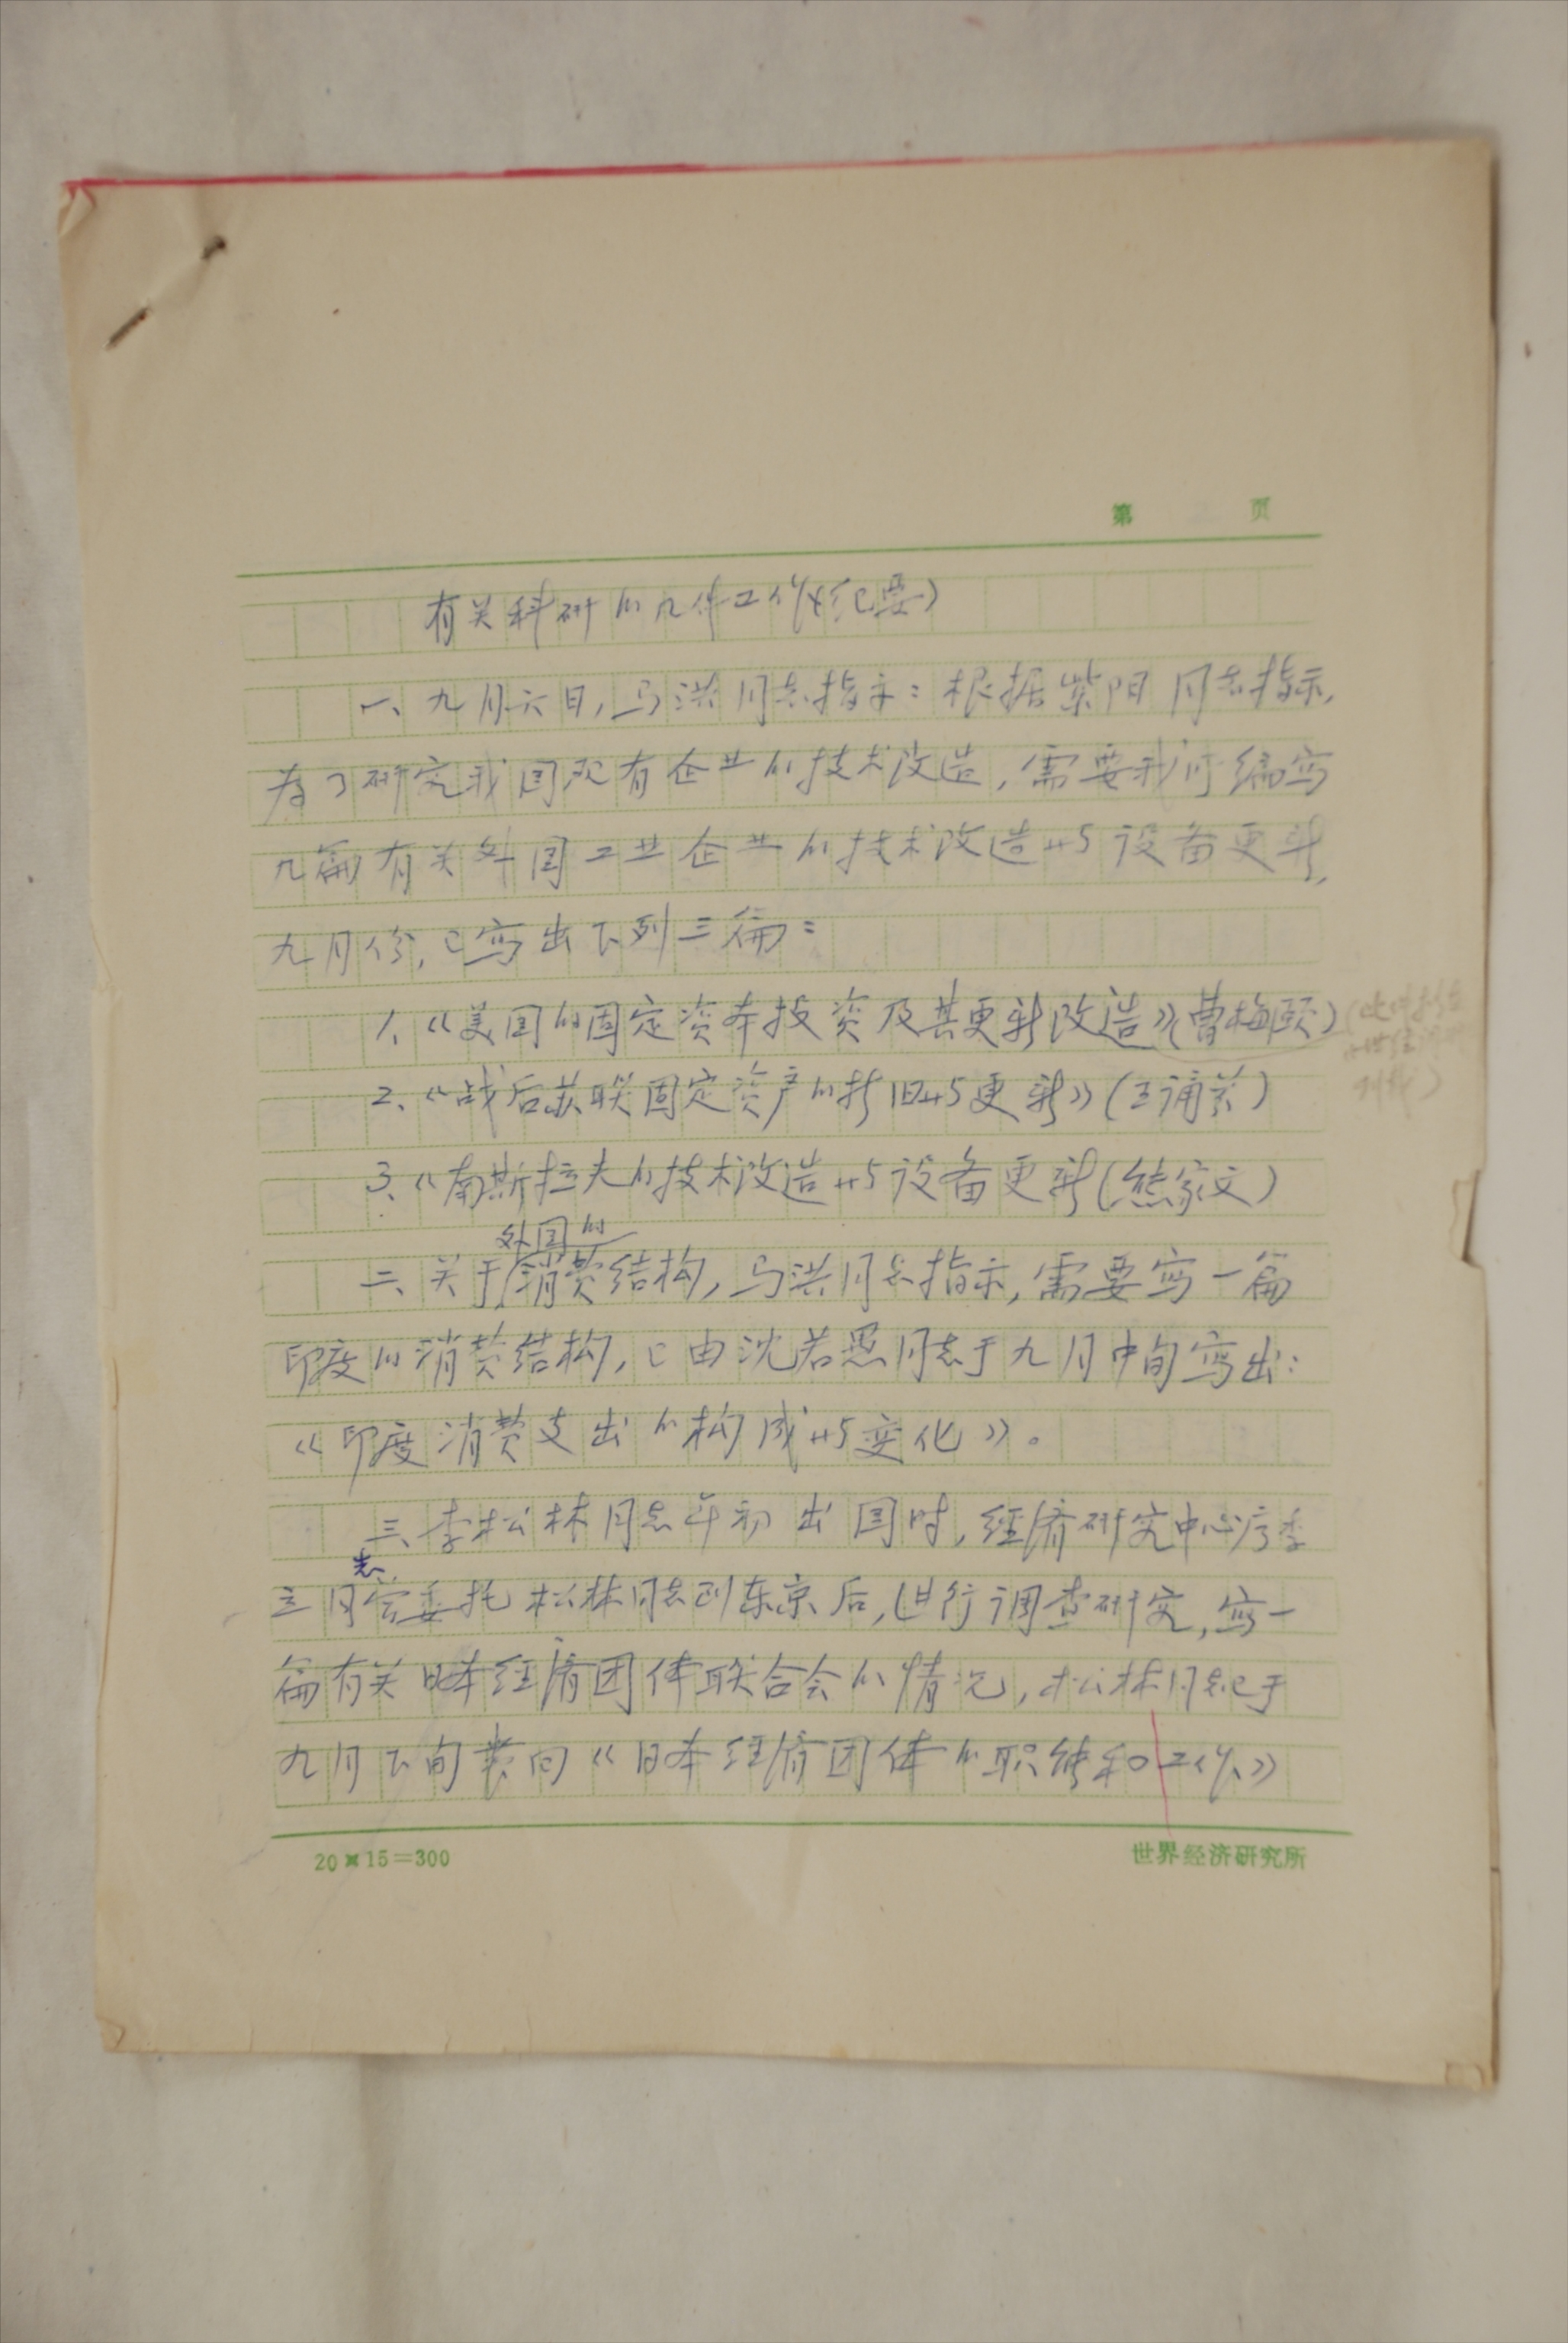 第 页
有关科研的几件工作(纪要)
一、九月六日,马洪同志指示:根据紫阳同志指示,
为了研究我国现有企业的技术改造,需要我所编写
几篇有关外国工业企业的技术改造与设备更新,
九月份,已写出下列三篇:
1、《美国的固定资本投资及其更新改造》(曹梅颐)
2、《战后苏联固定资产的折旧与更新》(王诵芬)
3、《南斯拉夫的技术改造与设备更新(熊家文)
外国的
二、关于消费结构,马洪同志指示,需要写一篇
印度的消费结构,已由沈若愚同志于九月中旬写出:
《印度消费支出的构成与变化》。
三、李松林同志年初出国时,经济研究中心
志
同 委托松林同志到东京后,进行调查研究,写一
篇有关日本经济团体联合会的情况,松林同志已于
九月下旬 《日本经济团体的职能和工作》
20×15=300
世界经济研究所